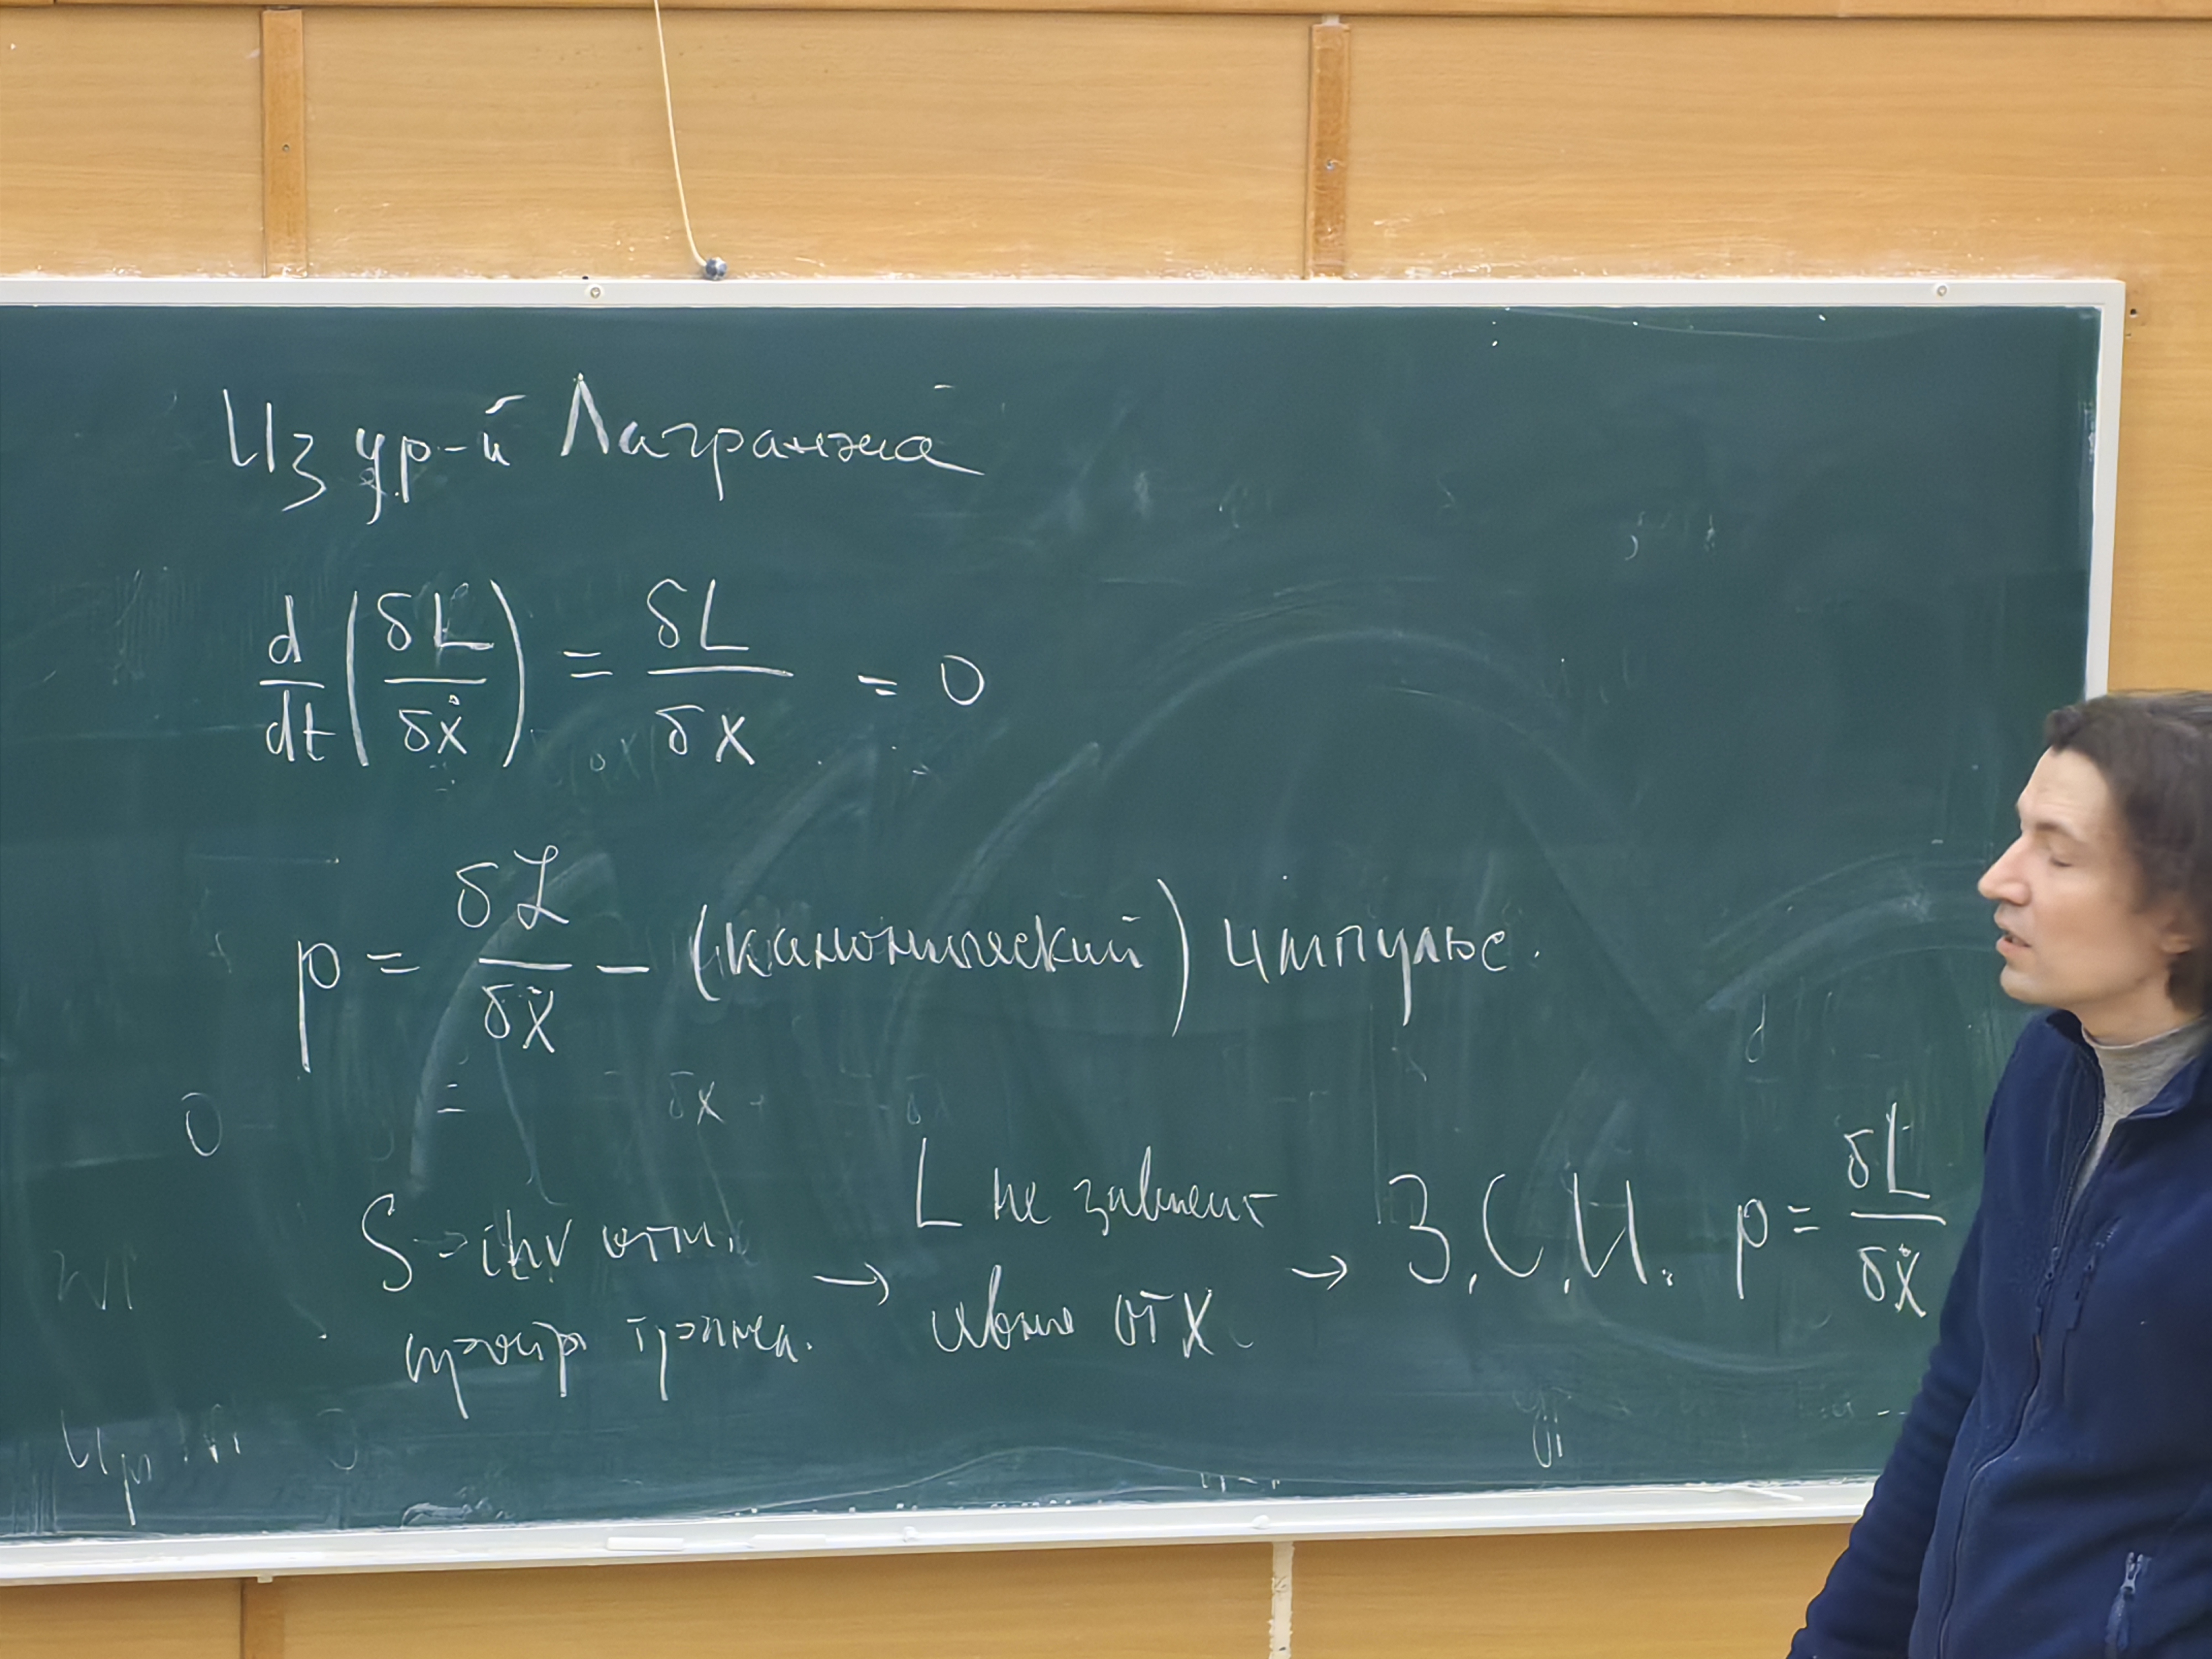 Из ур-й Лагранжа
d/dt (δL/δẋ) = δL/δx = 0
p = δL/δẋ – (канонический) импульс.
S – inv отн. простр трансл. → L не зависит явно от x → З.С.И. p = δL/δẋ